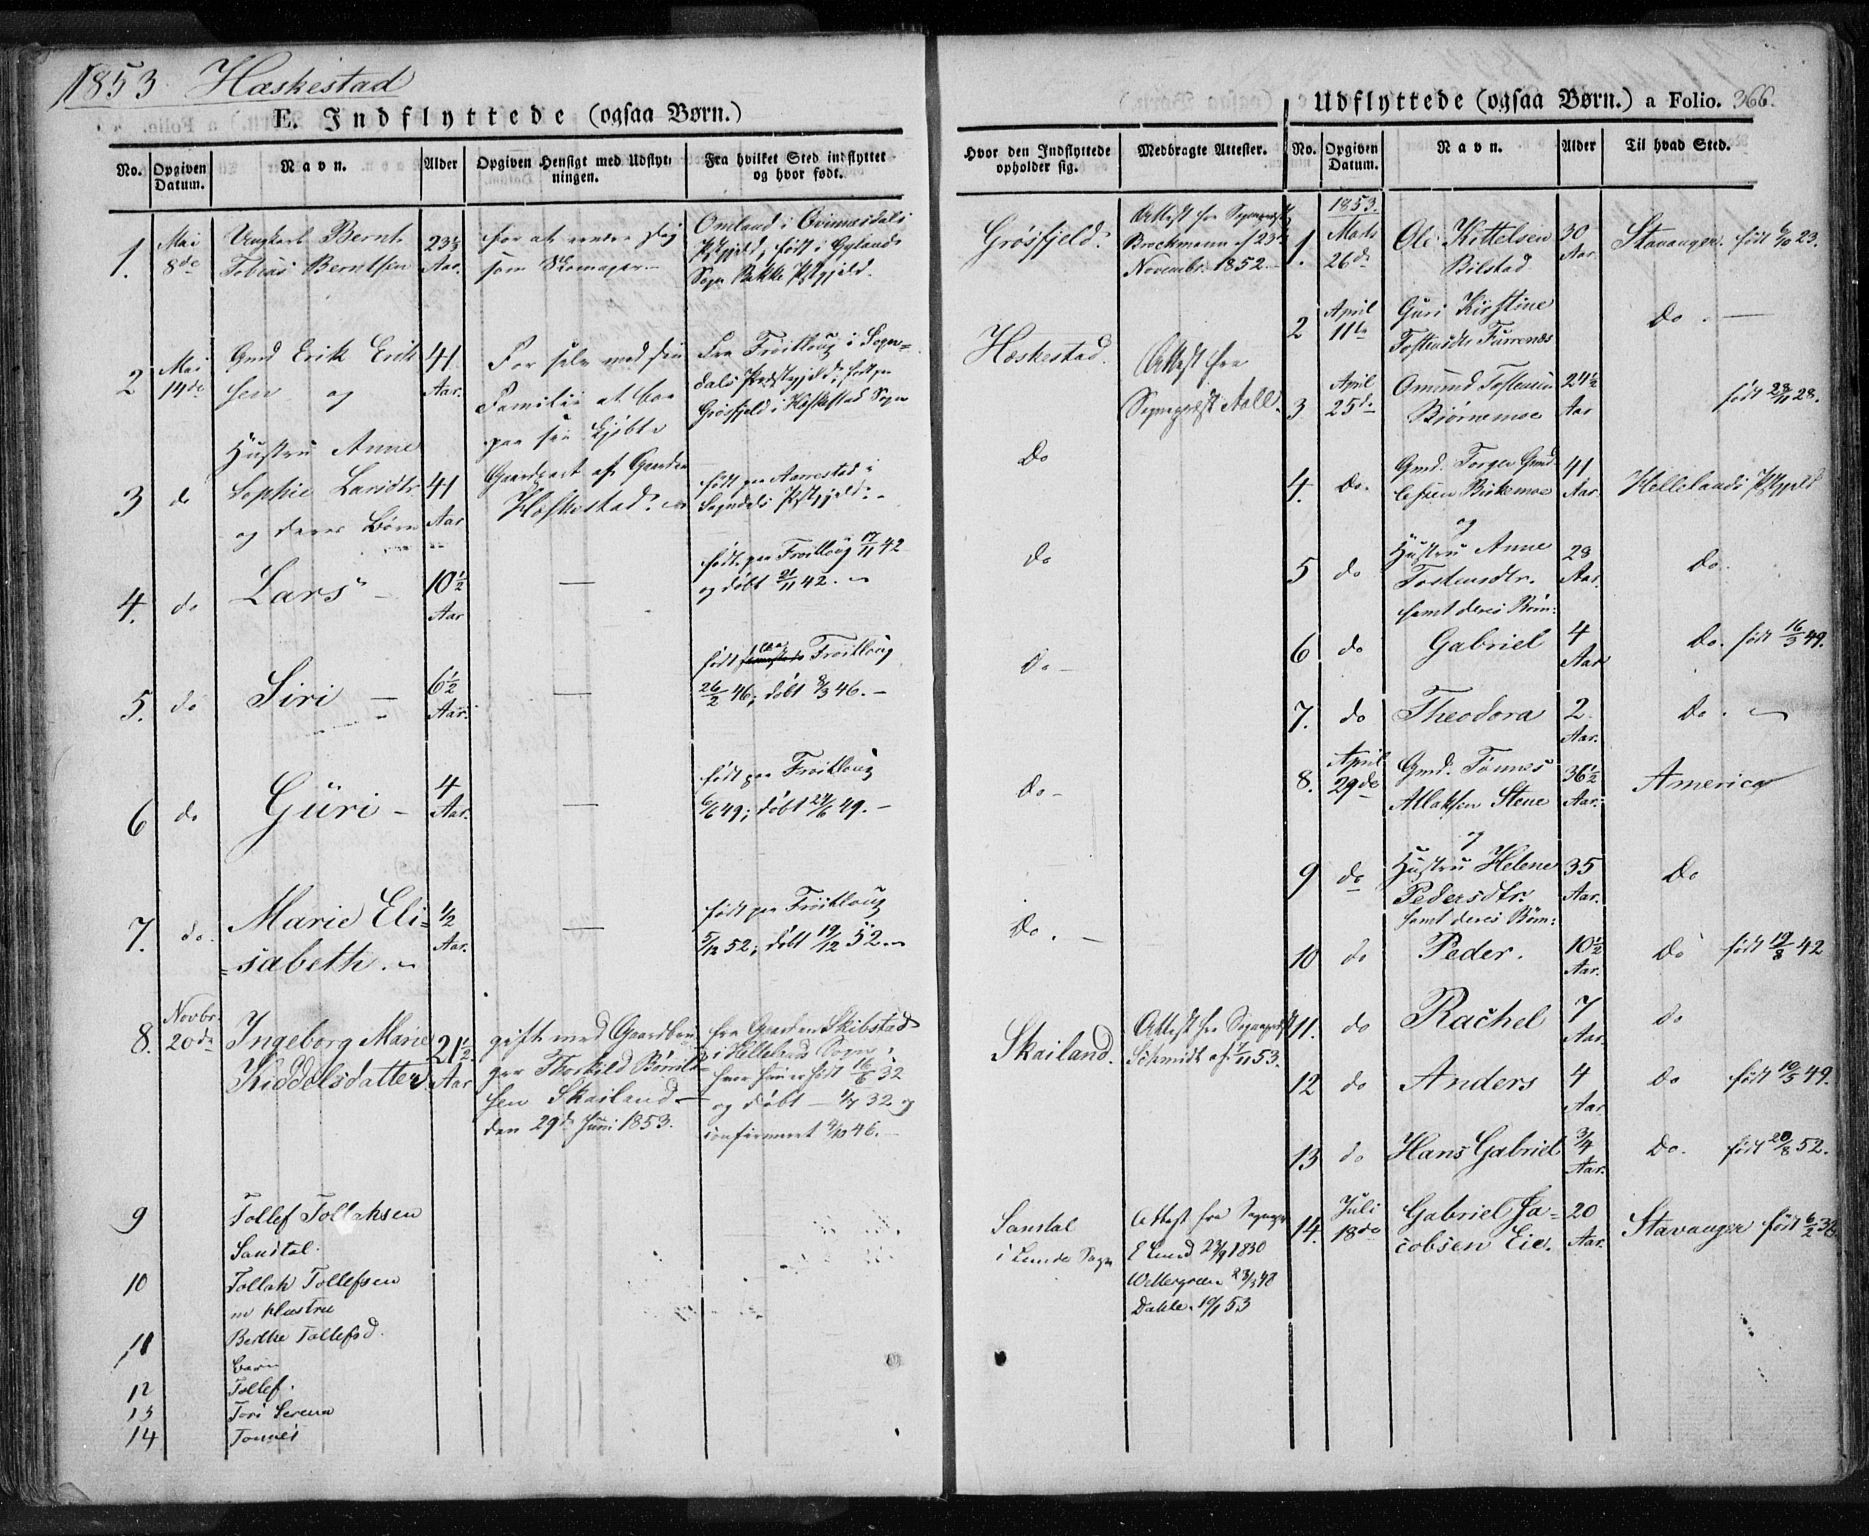 1853. Hæskestad
E. Indflyttede (ogsaa Børn.)
No. Opgiven Datum. Navn. Alder Opgiven Hensigt med Udflytningen. Fra hvilket Sted indflyttet og hvor født. Hvor den Indflyttede opholder sig. Medbragte Attester.
1. Mai 8de
Ungkarl Bernt
Tobias Berntsen
23½ Aar.
for at
som Skomager
Omland i Qvinesdals
Pstgjeld, født i Øylands
Sogn Bakke Pstgjeld.
Grøsfjeld.
Attest fra Sognepræst
Brockmann af 23de
Novembr. 1852.
2 Mai 14de
Gmd Erik Erik
sen og
41 Aar.
For selv med sin
Familie at boe
paa sin kjøbte
Gaardpart af Gaarden
Hæskestad.
Fra Frøitloug i Sogn=
dals Præstegjeld, født paa
Grøsfjeld i Hæskestad Sogn
Hæskestad.
Attest fra
Sognepræst Aall.
3 do
Hustru Anne
Sophie Larsdtr
og deres Børn
41 Aar
født paa Aarrestad i
Sogndals Pstgjeld.
Do
4. do Lars 10½ Aar —
født paa Frøitloug 17/11 42
og døbt 21/11 42.
Do
5. do Siri — 6½ Aar. —
født paa Frøitloug
26/2 46; døbt 8/3 46. —
Do —
6 do Güri — 4 Aar. —
født paa Frøitloug
6/6 49; døbt 24/6 49. —
Do —
7. do. Marie Eli=
=sabeth.
½ Aar. —
født paa Frøitloug
5/12 52; døbt 19/12 52.
Do. —
8. Novbr. 20de
Ingeborg Marie
Kiddelsdatter
21½ Aar
gift med Gaardbru
ger Thorkild
sen Skailand —
den 29de Juni 1853.
fra Gaarden Skibstad
i Hellelands Sogn,
hvor hun er født 16/6 32
og døbt — 1/7 32 og
confirmeret 4/10 46. —
Skailand.
Attest fra Sognepræst
Schmidt af 7/11 53.
9 Tollef Tollaksen
Sandtal.
Sandal
i Lunde Sogn
Attest fra Sognepr
E Lund 23/9 1830
Wettergreen 23/3 48
Dahle. 10/1 53
10 Tollak Tollefsen
m Hustru
11 Berthe Tollefsd.
Børn
12 Tollef.
13 Tori Serena
14 Tonnes
Udflyttede (ogsaa Børn.) a Folio. 366.
No. Opgiven Datum. Navn. Alder Til hvad Sted.
1853.
1. Marts 26de Ole Kittelsen
Bilstad
30 Aar Stavanger. født 6/10 23.
2 April 11te Guri Kirstine
Tostensdtr Furrenæs
Do. —
3 April 25de Omund Tostensen
Bjørnemoe
24½ Aar født 28/11 28.
4. do. Gmd. Torger Gmd
lesen Birkemoe
og
41 Aar. Hellelands Pstgjeld
5 do Hustru Anne
Tostensdtr.
samt deres Børn:
28 Aar. Do.
6 do Gabriel 4 Aar Do. født 16/3 49.
7. do Theodora 2 Aar. Do.
8. April 29de Gmd. Tønnes
Atlaksen Stene
og
36½ Aar. America
9 do Hustru Helene
Pedersdtr.
samt deres Børn:
35 Aar. Do
10 do Peder. 10½ Aar. Do født 19/8 42
11. do Rachel 7 Aar. do
12 do Anders 4 Aar Do født 10/5 49.
13 do Hans Gabriel ¾ Aar. Do. født 20/8 52.
14. Juli 18de Gabriel Ja=
cobsen Eie.
20 Aar. Stavanger født 6/2 32.